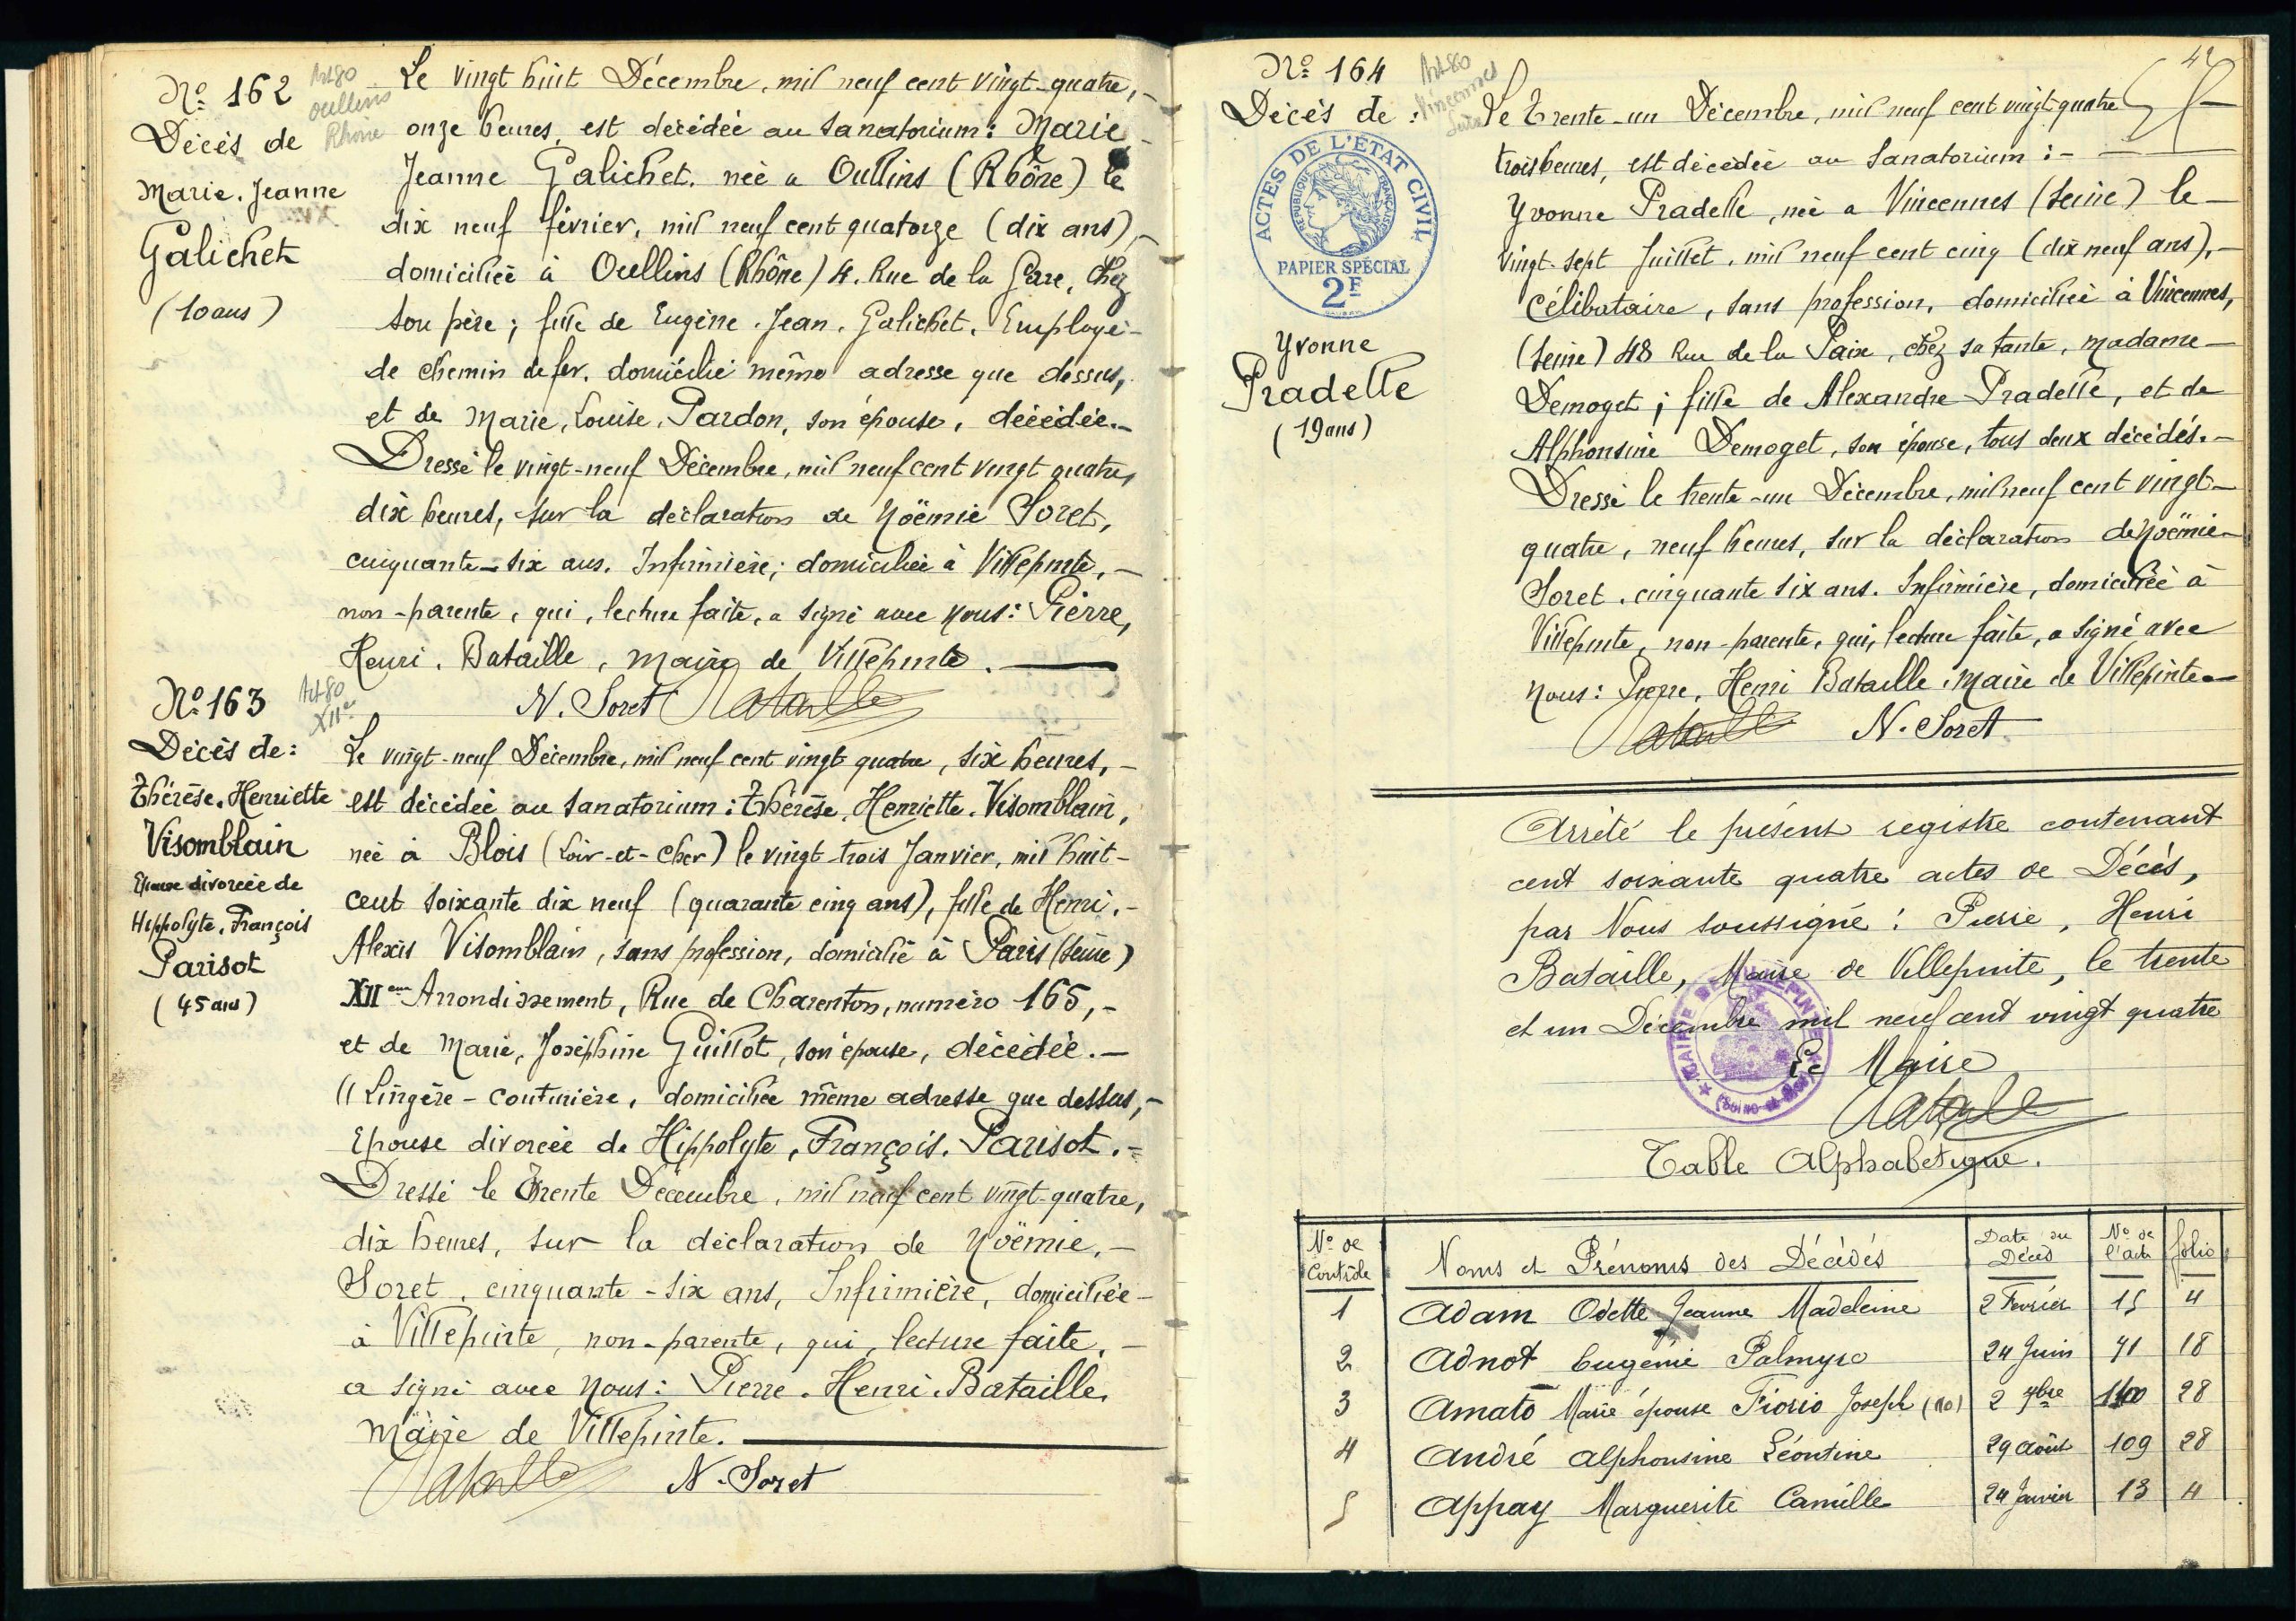 Nº 162
Art 80
Oullins
Rhône
Décès de
Marie. Jeanne
Galichet
(10 ans)
Le vingt huit Décembre, mil neuf cent vingt-quatre,
onze heures, est décédée au Sanatorium: Marie
Jeanne Galichet. née a Oullins (Rhône) le
dix neuf février, mil neuf cent quatorze (dix ans),
domiciliée à Oullins (Rhône) 4. Rue de la Gare, chez
son père; fille de Eugène. Jean. Galichet. Employé
de chemin de fer. domicilié même adresse que dessus,
et de Marie, Louise, Pardon, son épouse, décédée.
Dressé le vingt-neuf Décembre, mil neuf cent vingt quatre,
dix heures, sur la déclaration de Noëmie Soret,
cinquante-six ans. Infirmière; domiciliée à Villepinte,
non-parente, qui, lecture faite, a signé avec nous: Pierre,
Henri. Bataille, Maire de Villepinte.
N. Soret Bataille
Nº 163
Art 80
XIIe
Décès de:
Thérèse. Henriette
Visomblain
Epouse divorcée de
Hippolyte. François
Parisot
(45 ans)
Le vingt-neuf Décembre, mil neuf cent vingt quatre, six heures,
est décédée au Sanatorium: Thérèse, Henriette. Visomblain,
née à Blois (Loir-et-Cher) le vingt-trois Janvier, mil huit-
cent soixante dix neuf (quarante cinq ans), fille de Henri.
Alexis Visomblain, sans profession, domicilié à Paris (Seine)
XIIeme Arrondissement, Rue de Charenton, numéro 165,
et de Marie, Joséphine Guillot, son épouse, décédée.
(( Lingère-couturière, domiciliée même adresse que dessus,
Epouse divorcée de Hippolyte, François. Parisot.
Dressé le trente Décembre, mil neuf cent vingt-quatre,
dix heures, sur la déclaration de Noëmie,
Soret, cinquante-six ans, Infirmière, domiciliée
à Villepinte, non-parente, qui, lecture faite,
a signé avec nous: Pierre. Henri. Bataille.
Maire de Villepinte.
Bataille N. Soret
42
Nº 164
Art 80
Vincennes
Seine
Décès de:
ACTES DE L'ÉTAT CIVIL
RÉPUBLIQUE FRANÇAISE
PAPIER SPÉCIAL
2F
Yvonne
Pradelle
(19 ans)
Le Trente-un Décembre, mil neuf cent vingt quatre
trois heures, est décédée au Sanatorium:
Yvonne Pradelle, née a Vincennes (Seine) le
vingt-sept Juillet, mil neuf cent cinq (dix neuf ans),
Célibataire, sans profession, domiciliée à Vincennes,
(Seine) 48 Rue de la Paix, chez sa tante, madame
Demoget; fille de Alexandre Pradelle, et de
Alphonsine Demoget, son épouse, tous deux décédés.
Dressé le trente-un Décembre, mil neuf cent vingt-
quatre, neuf heures, sur la déclaration de Noëmie
Soret. cinquante six ans. Infirmière, domiciliée à
Villepinte, non-parente, qui, lecture faite, a signé avec
nous: Pierre, Henri Bataille. Maire de Villepinte
Bataille N. Soret
Arrêté le présent registre contenant
cent soixante quatre actes de Décès,
par Nous soussigné: Pierre, Henri
Bataille, Maire de Villepinte, le trente
et un Décembre mil neuf cent vingt quatre
Le Maire
Bataille
MAIRIE DE VILLEPINTE
Table Alphabétique.
Nº de Contrôle Noms et Prénoms des Décédés Date du Décès Nº de l'acte folio
1 Adam Odette Jeanne Madeleine 2 Février 15 4
2 Adnot Eugénie Palmyre 24 Juin 71 18
3 Amato Marie épouse Fiorio Joseph (110) 2 7bre 110 28
4 André Alphonsine Léontine 29 Août 109 28
5 Appay Marguerite Camille 24 Janvier 13 4